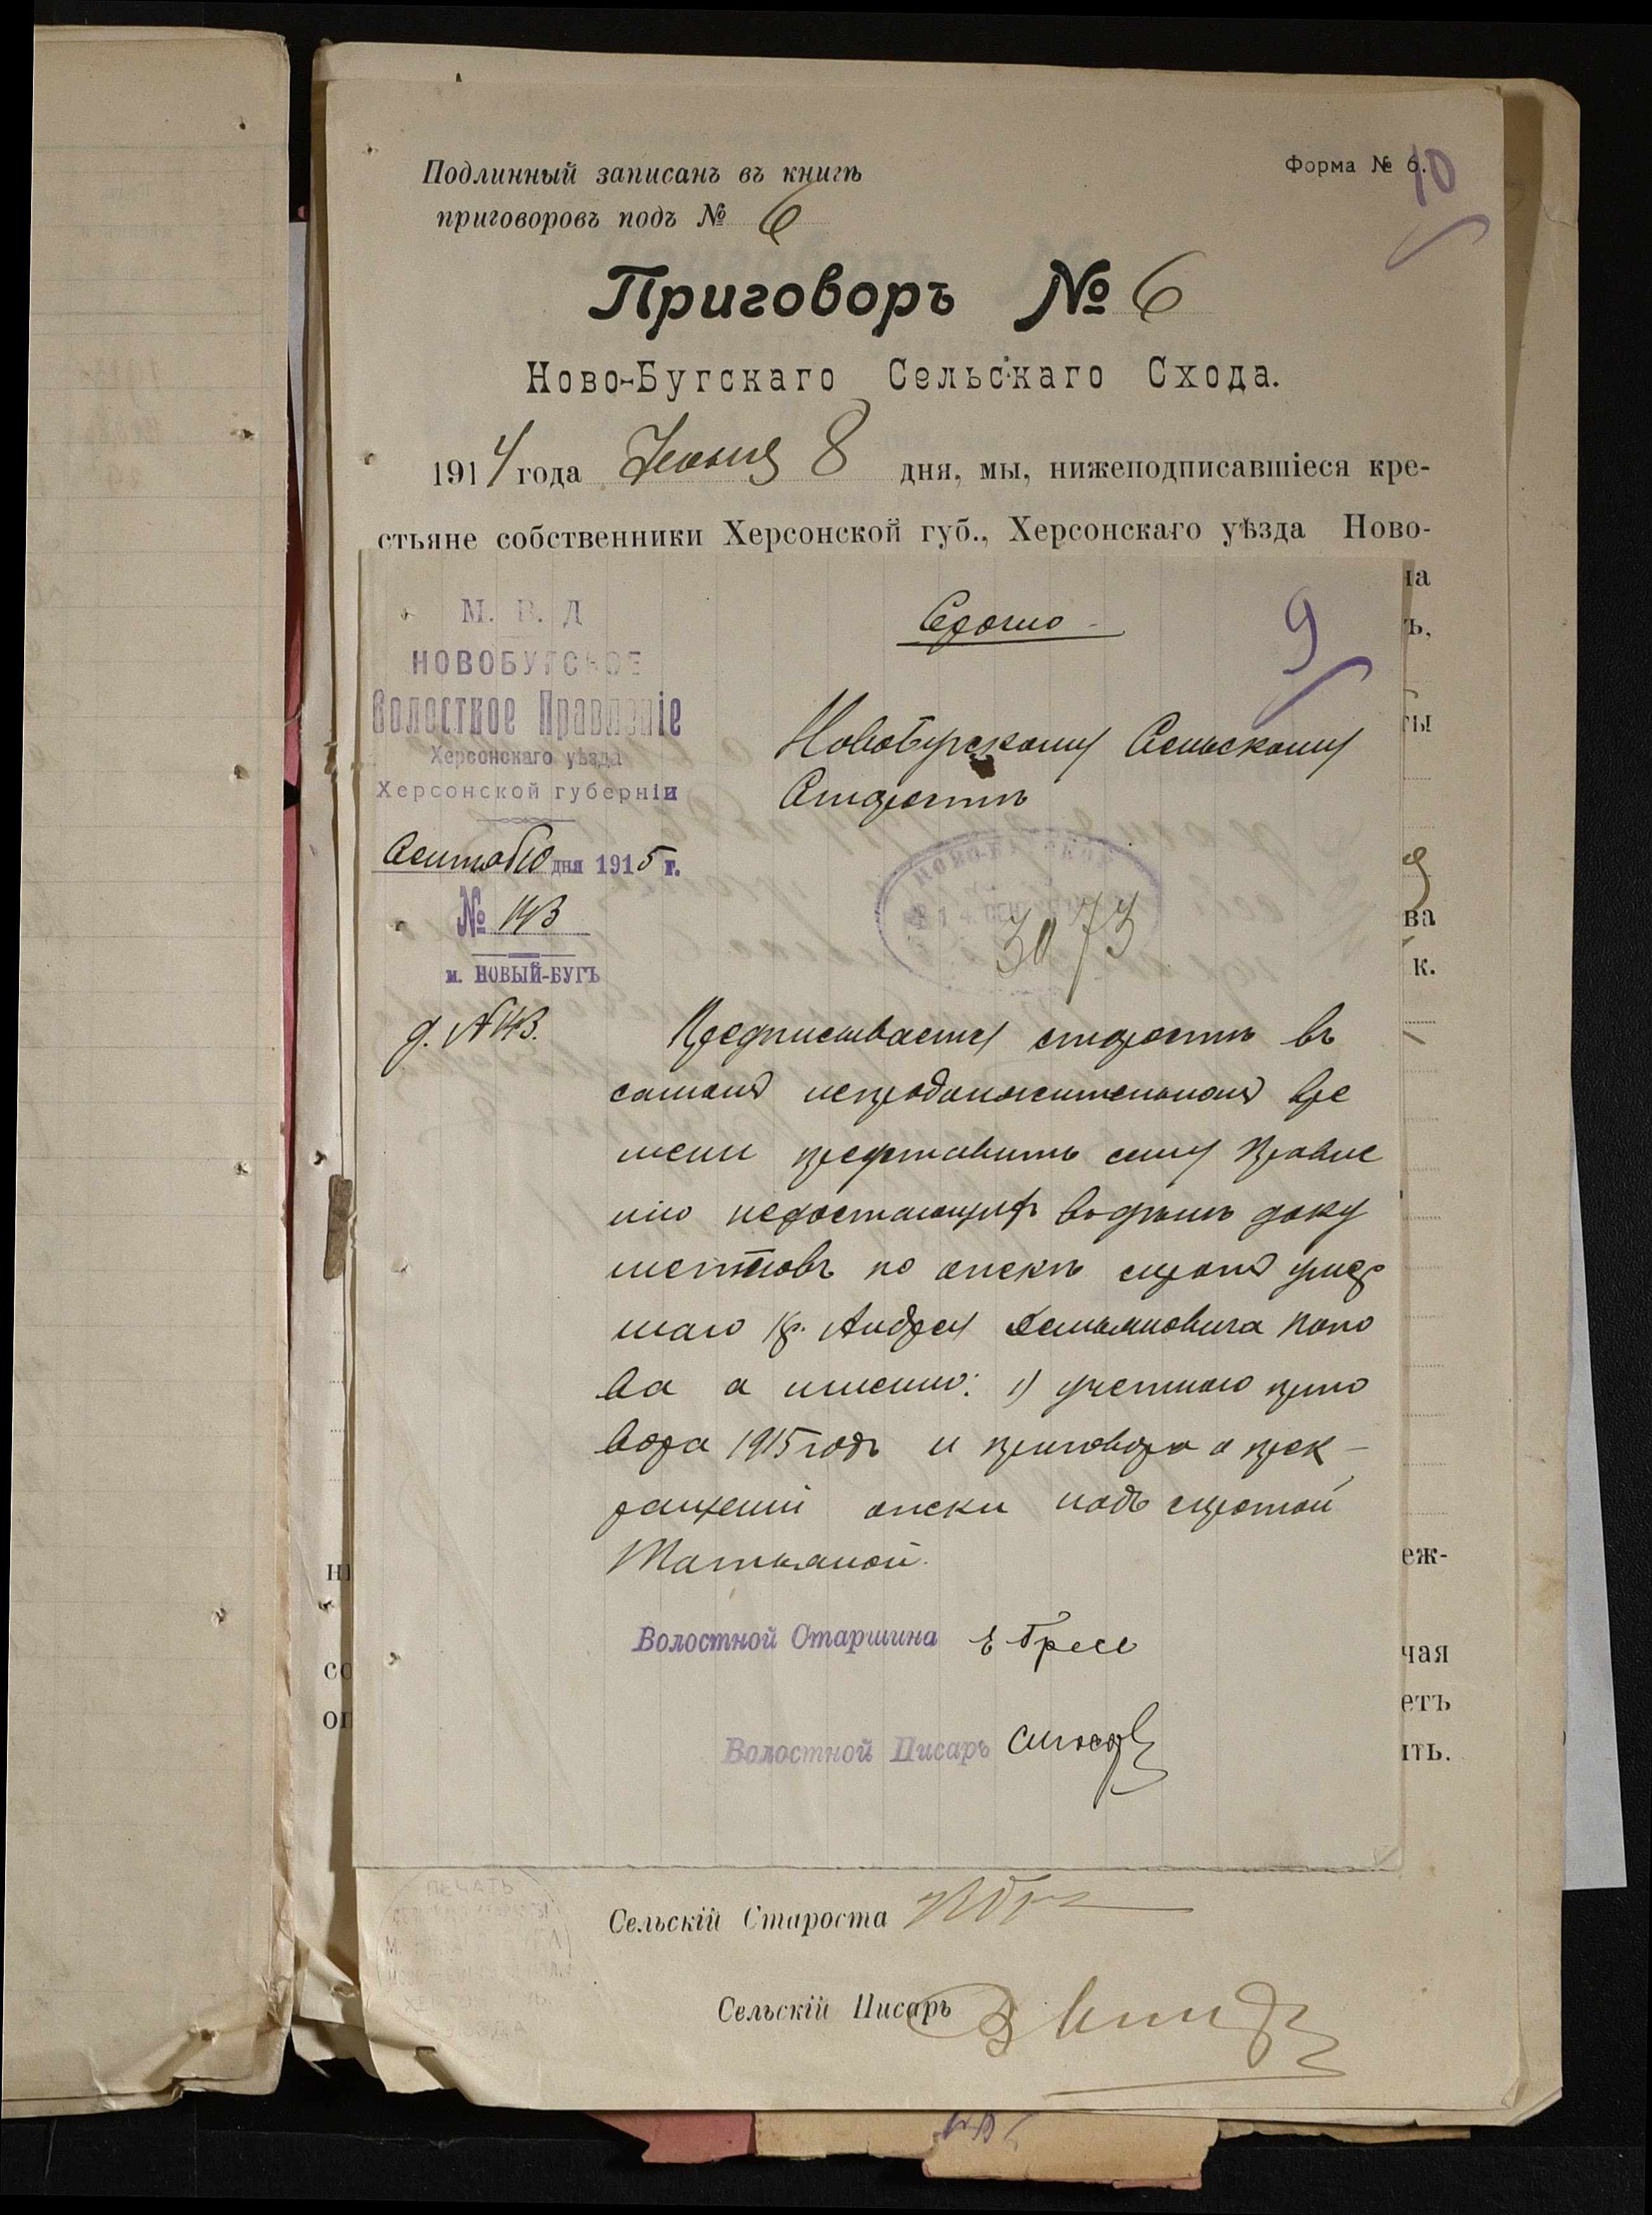 Подлинный записанъ въ книгѣ
приговоровъ подъ № 6
Форма № 6.
10
Приговоръ № 6
Ново-Бугскаго Сельскаго Схода.
1914 года Іюня 8 дня, мы, нижеподписавшіеся кре-
стьяне собственники Херсонской губ., Херсонскаго уѣзда Ново-
М. В. Д
НОВОБУГСКОЕ
Волостное Правленіе
Херсонскаго уѣзда
Херсонской губерніи
Сентяб 10 дня 1915 г.
№ 143
м. НОВЫЙ-БУГЪ
д. № 143.
Срочно
9
Новобугскому Сельскому
Старостѣ
3073
Предписывается старостѣ въ
самомъ непродолжительномъ вре
мени представить сему Правле
нію недостающихъ въ дѣлѣ доку
ментовъ по опекѣ сиротъ умер
шаго кр. Андрея Емельяновича Попо
ва а именно: 1) учетного приго
вора 1915 годъ и приговора о прек-
ращеніи опеки надъ сиротой
Татьяной.
Волостной Старшина
Волостной Писарь
на
ъ,
ты
ва
к.
еж-
чая
етъ
ить.
ні
со
оп
Сельскій Староста
Сельскій Писарь
ПЕЧАТЬ